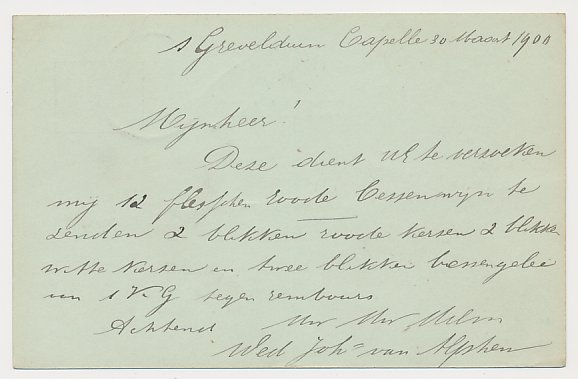 s Grevelduin Capelle 30 Maart 1900
Mijnheer!
Deze dient UE te verzoeken
mij 12 flesschen roode bessenwijn te
zenden 2 blikken roode kersen 2 blikken
witte kersen en twee blikken bessengelei
van 1 K.G tegen rembours
Achtend
Wed Joh. van Alphen